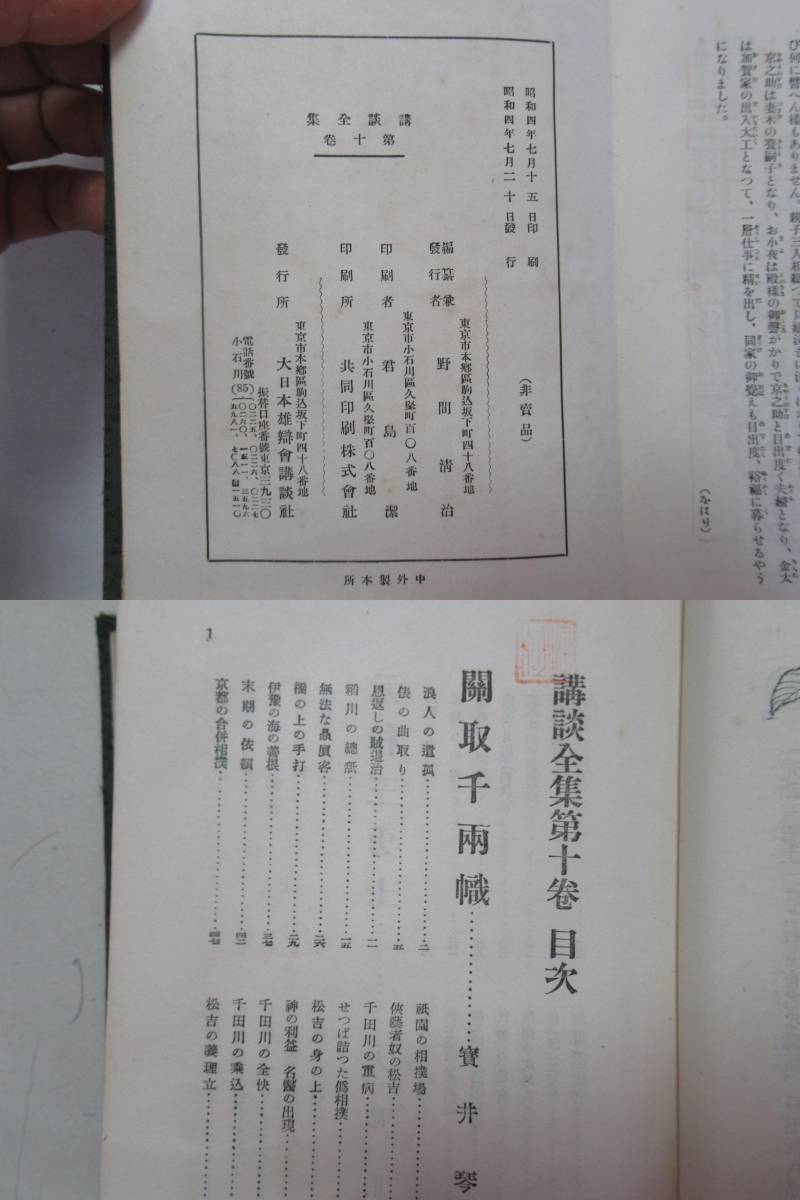 び何に譬へん様もありません。
京之助は妻木の養嗣子となり、お小夜は殿様の御聲がかりで京之助と目出度く夫婦となり、金太
は加賀家の出入大工となつて、一層仕事に精を出し、同家の御覺えも目出度、裕福に暮らせるやう
になりました。
(をはり)
昭和四年七月十五日印刷
昭和四年七月二十日發行
講談全集
第十卷
(非賣品)
東京市本鄕區駒込坂下町四十八番地
編纂兼
發行者 野間淸治
東京市小石川區久堅町百〇八番地
印刷者 君島潔
東京市小石川區久堅町百〇八番地
印刷所 共同印刷株式會社
東京市本鄕區駒込坂下町四十八番地
發行所 大日本雄辯會講談社
振替口座番號東京三九三〇
電話番號
小石川(85)
中外製本所
講談全集第十卷 目次
關取千兩幟…………寶井琴
浪人の遺孤…………二
俵の曲取り…………五
恩返しの賊退治…………一一
稻川の總紙…………一五
無法な贔屓客…………二六
橋の上の手打…………二九
伊豫の海の善根…………三七
末期の依賴…………四二
京都の合併相撲…………四七
祇園の相撲場
俠藝者奴の松吉
千田川の重病
せつぱ詰つた僞相撲
松吉の身の上
神の利益 名醫の出現
千田川の全快
千田川の乘込
松吉の義理立
1